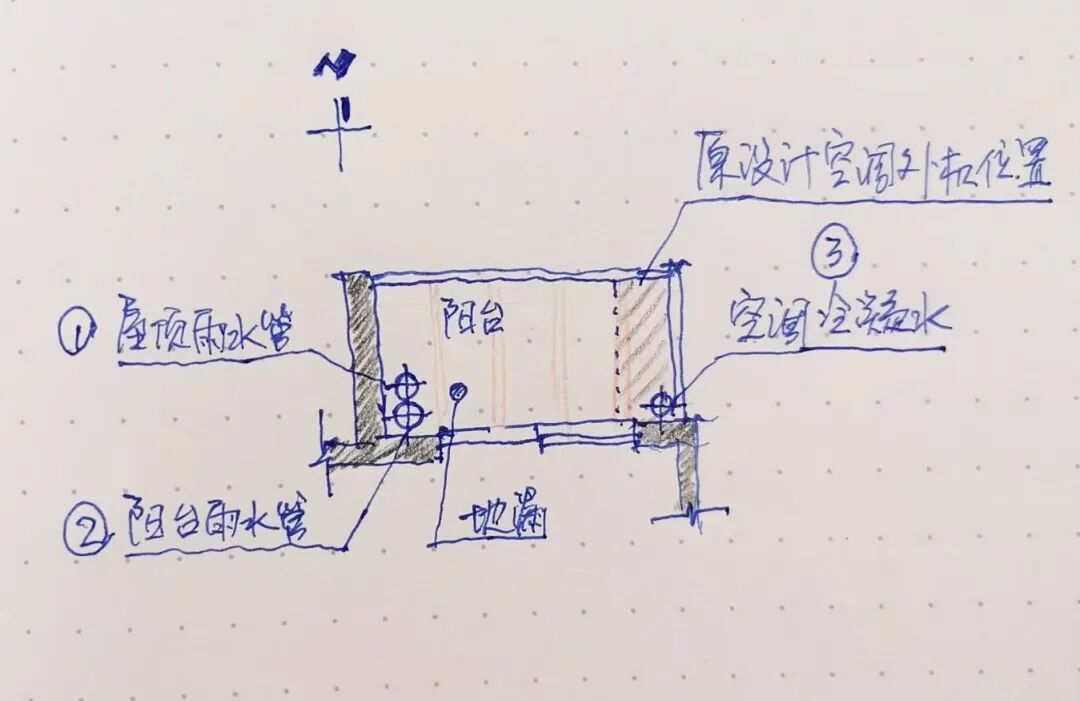 N
原设计空调外机位置
③
空调冷凝水
① 屋顶雨水管
阳台
② 阳台雨水管
地漏